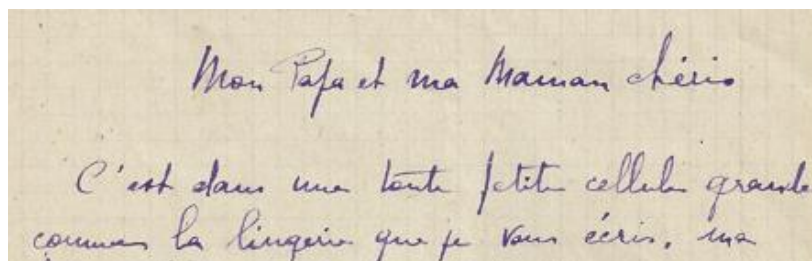 Mon Papa et ma Maman chéris
C'est dans une toute petite cellule grande
comme la lingerie que je vous écris, ma